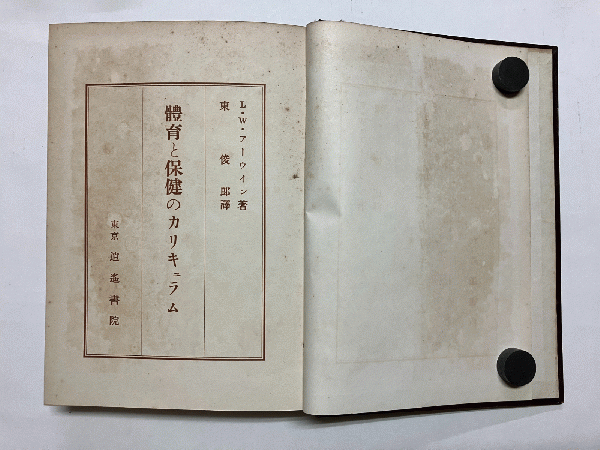 L・W・アーウイン著
東俊郎譯
體育と保健のカリキュラム
東京 逍遙書院